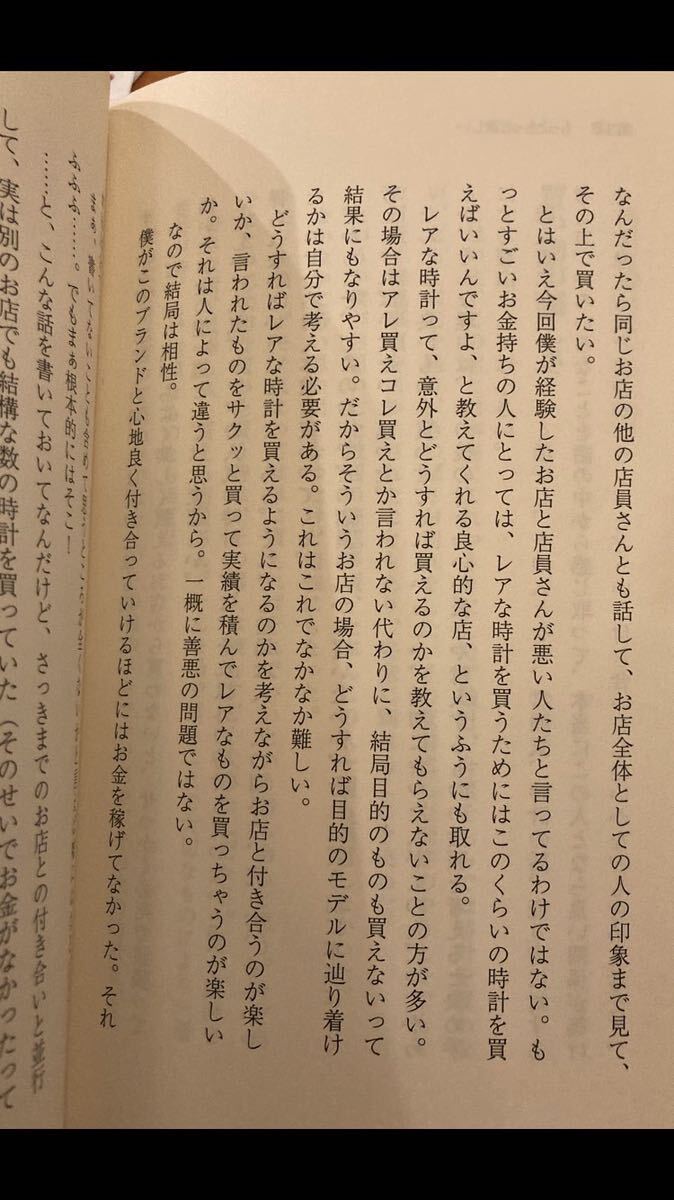 なんだったら同じお店の他の店員さんとも話して、お店全体としての人の印象まで見て、
その上で買いたい。
とはいえ今回僕が経験したお店と店員さんが悪い人たちと言ってるわけではない。も
っとすごいお金持ちの人にとっては、レアな時計を買うためにはこのくらいの時計を買
えばいいんですよ、と教えてくれる良心的な店、というふうにも取れる。
レアな時計って、意外とどうすれば買えるのかを教えてもらえないことの方が多い。
その場合はアレ買えコレ買えとか言われない代わりに、結局目的のものも買えないって
結果にもなりやすい。だからそういうお店の場合、どうすれば目的のモデルに辿り着け
るかは自分で考える必要がある。これはこれでなかなか難しい。
どうすればレアな時計を買えるようになるのかを考えながらお店と付き合うのが楽し
いか、言われたものをサクッと買って実績を積んでレアなものを買っちゃうのが楽しい
か。それは人によって違うと思うから。一概に善悪の問題ではない。
なので結局は相性。
僕がこのブランドと心地良く付き合っていけるほどにはお金を稼げてなかった。それ
まぁ、書いてないことも含めて
ふふふ……。でもまぁ根本的にはそこ！
……と、こんな話を書いておいてなんだけど、さっきまでのお店との付き合いと並行
して、実は別のお店でも結構な数の時計を買っていた（そのせいでお金がなかったって